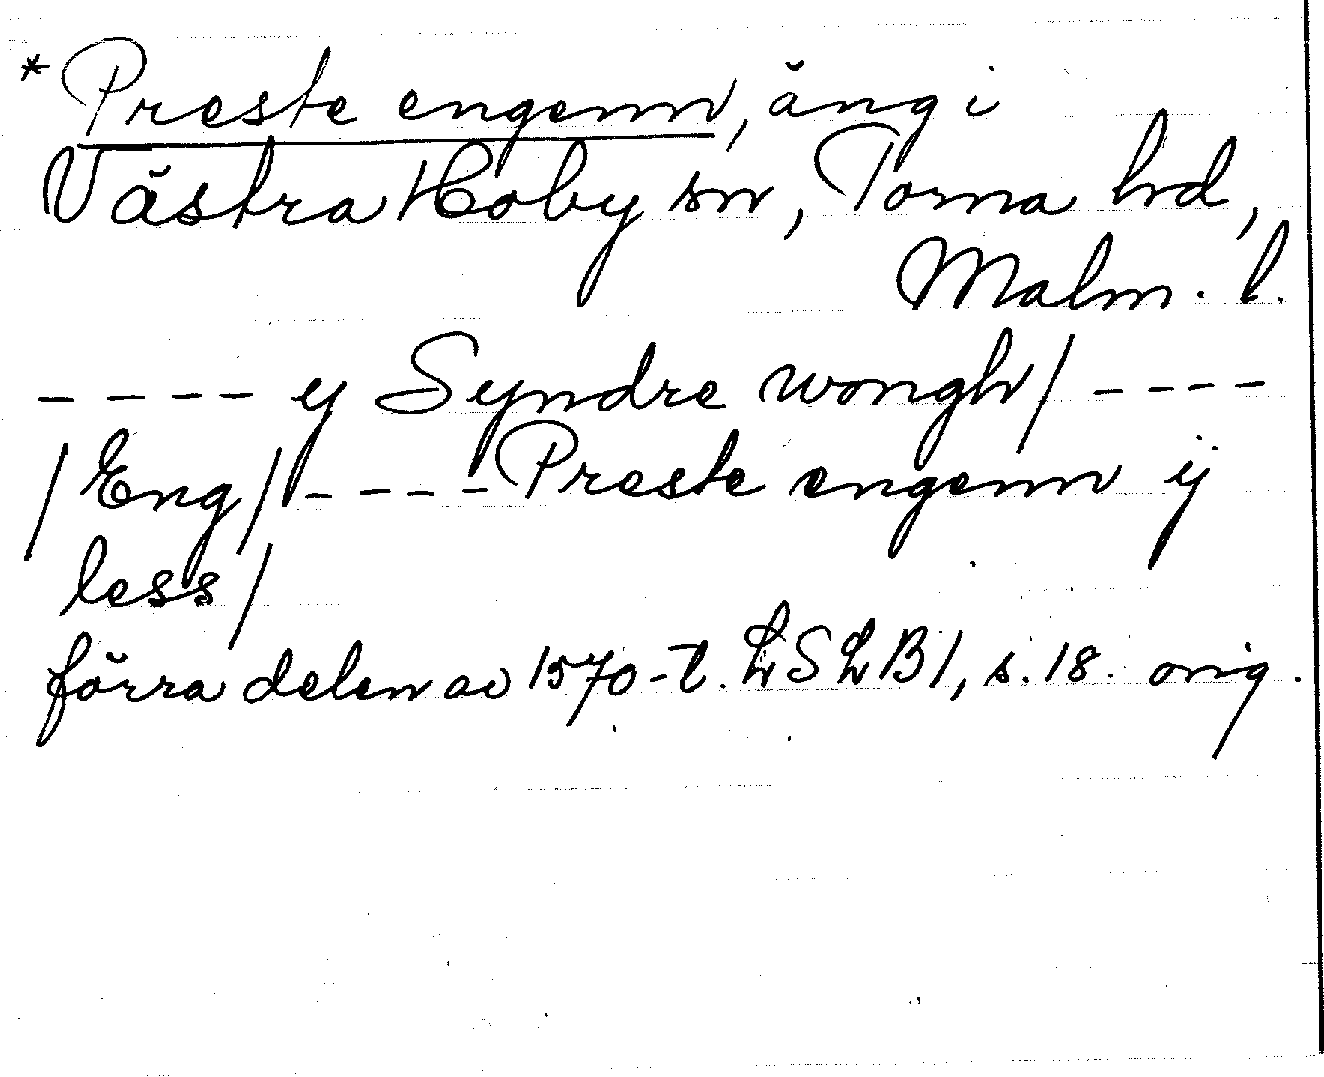 * Preste engenn, äng i
Västra Hoby sn, Torna hd,
Malm. l.
- - - - - ij Syndre wongh/ - - - -
/Eng/ - - - - Preste engenn ij
less/
förra delen av 1570-t. LSLB1, s. 18. orig.